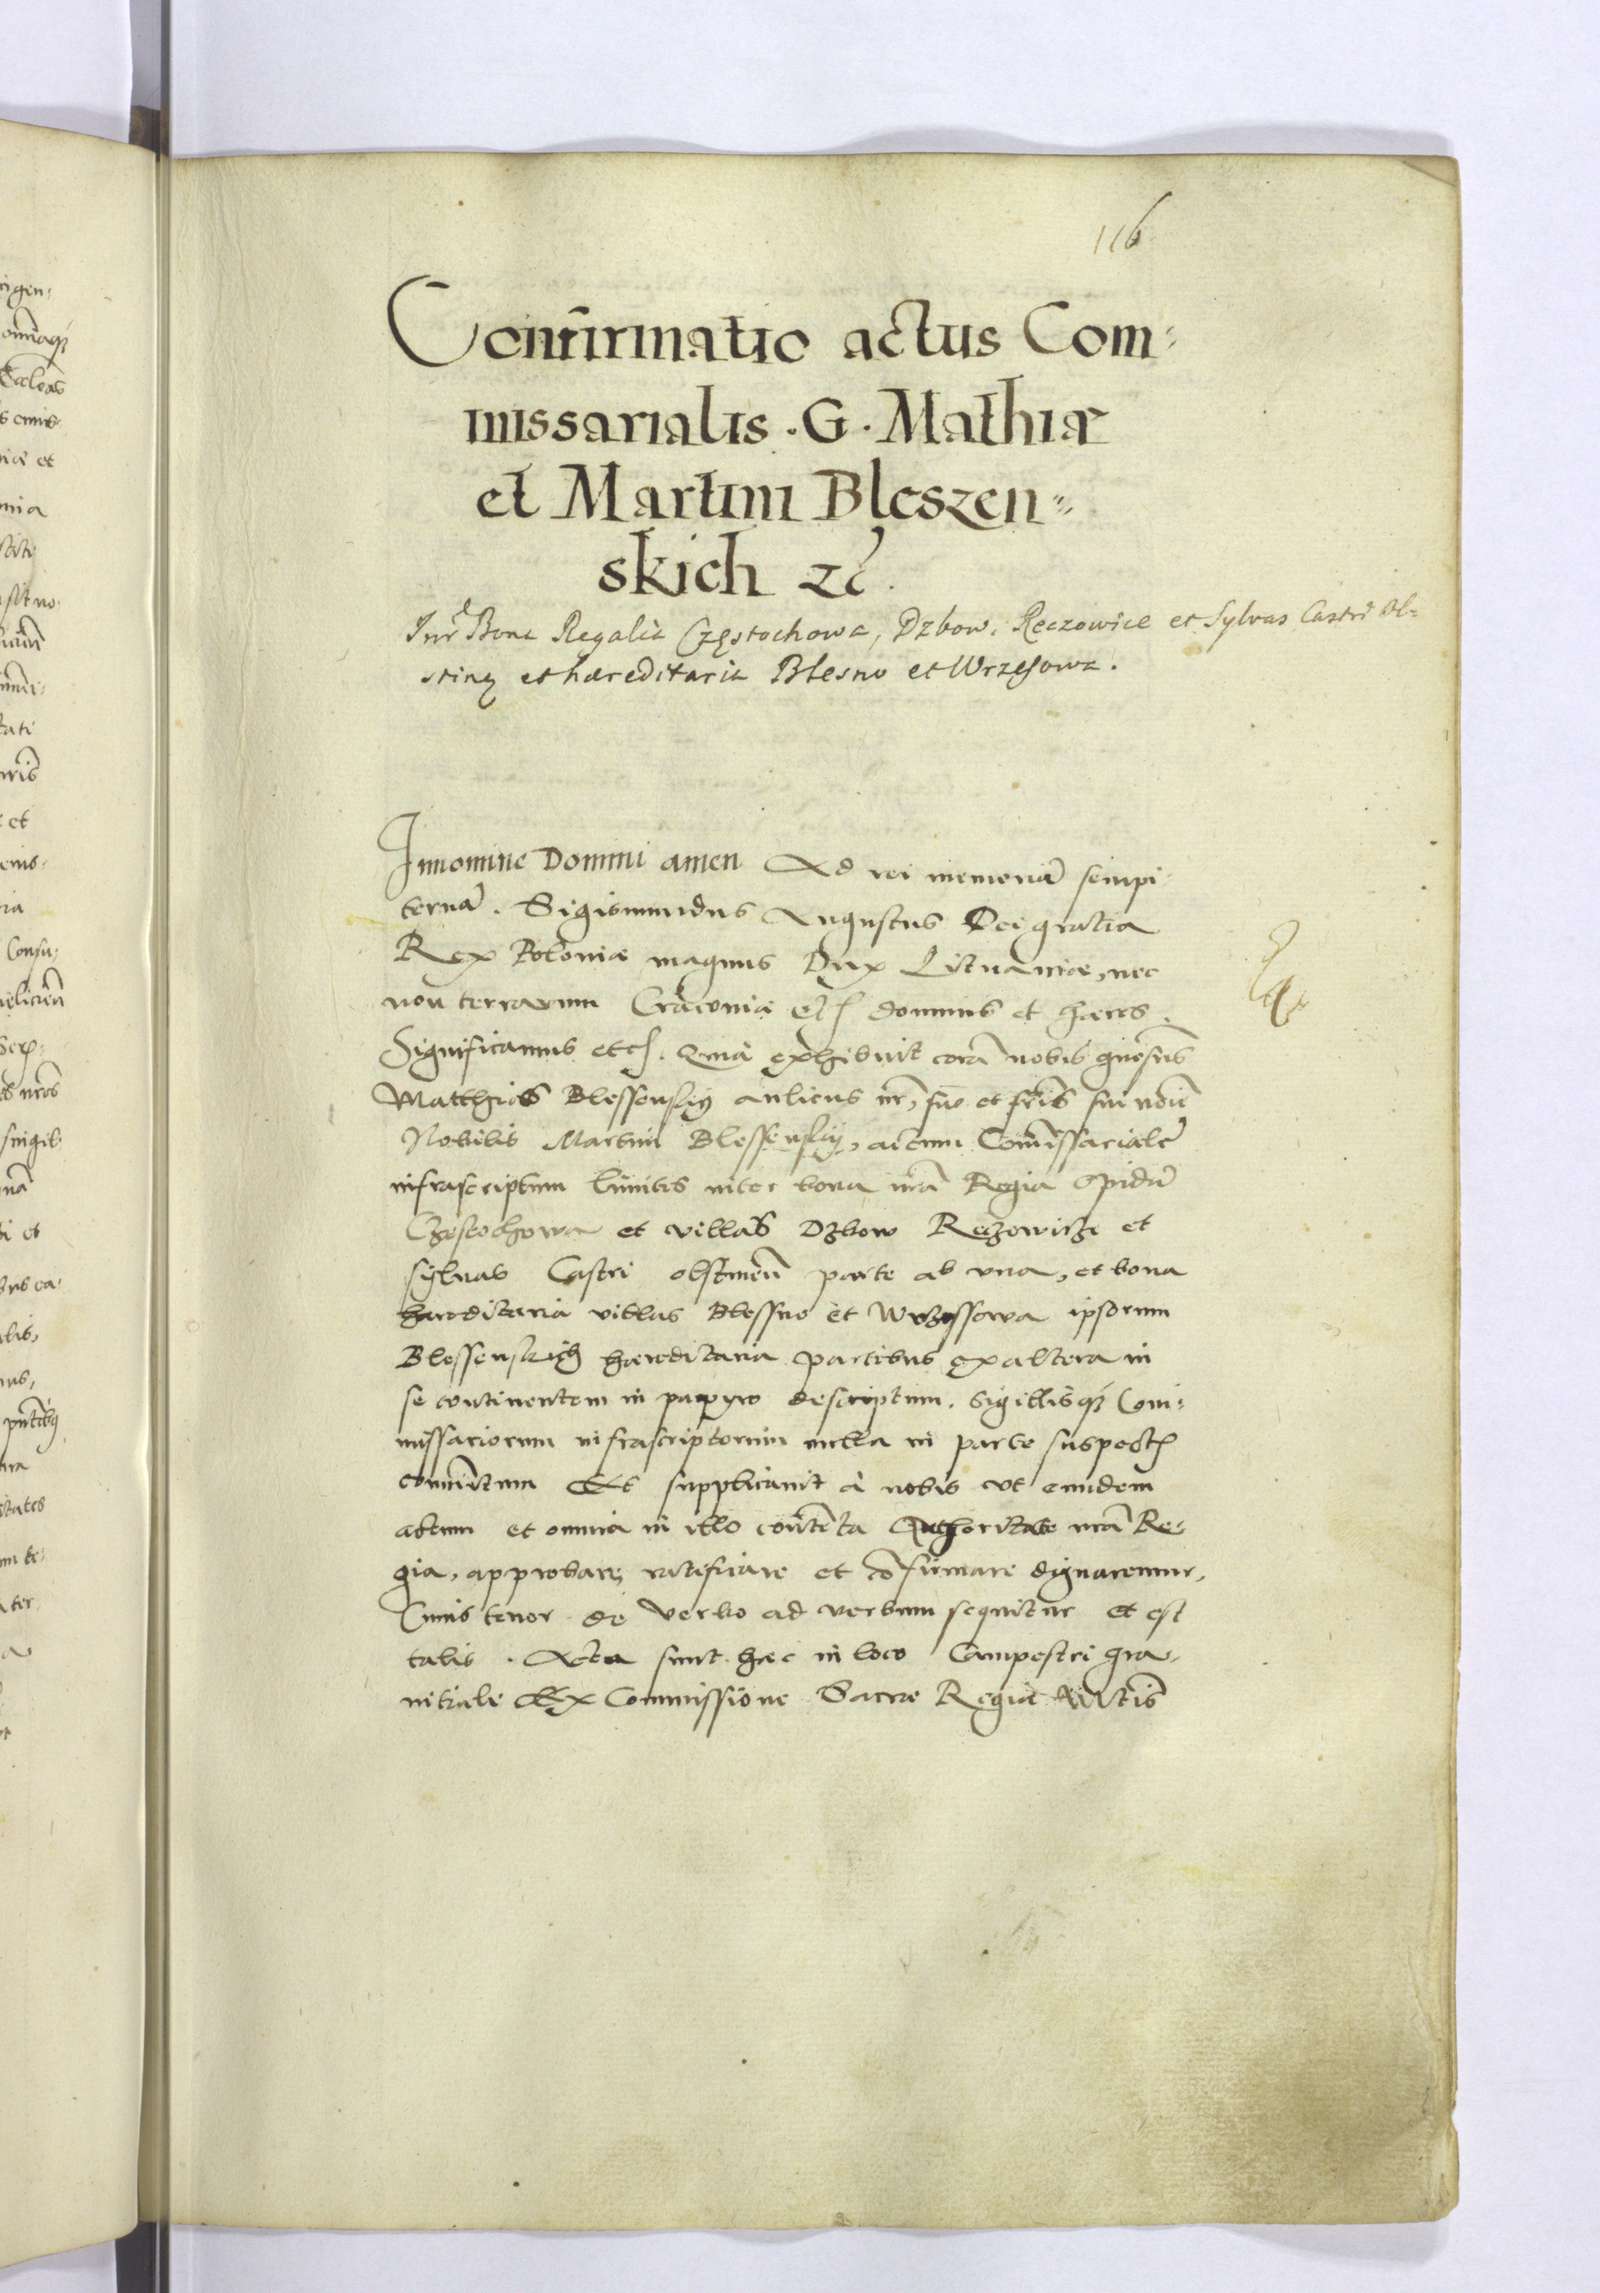 116
Confirmatio actus Com-
missarialis . G . Mathiæ
et Martini Bleszen-
skich zc̃.
Intr̃ Bona Regalia Częstochowa, Dzbow, Reczowice et Sylvas Castri Ol-
stinẽ et hæreditaria Blesno et Wrzesowa.
In nomine Domini amen Ad rei memoriã sempi-
ternã. Sigismundus Augustus Dei gratia
Rex Poloniæ magnus Dux Lituaniæ, nec
non terrarum Cracoviæ etc̃ dominus et hæres.
Significamus etc̃. Quia exhibuit corã nobis gñosus
Matthias Blessensky aulicus nr̃, suo et frĩs sui noĩe
Nobilis Martini Blessensky, actum Com̃issarialẽ
infrascriptum limites inter bona nr̃a Regia Opidũ
Czestochowa et villas Dzbow Reczowicze et
sylvas Castri olstineñ parte ab una, et bona
hæreditaria villas Blessno et Wrzossowa ipsorum
Blessenskich hæreditaria partibus ex altera in
se continentem in papyro descriptum, sigillisq3 Com-
missariorum infrascriptorum nulla in parte suspect̃
com̃unitum Et supplicavit a nobis ut eundem
actum et omnia in illo contẽta Authoritate nr̃a Re-
gia, approbare, ratificare et cõfirmare dignaremur,
Cuius tenor de verbo ad verbum sequitur et est
talis. Acta sunt hæc in loco Campestri gra-
nitiali Ex Commissione Sacræ Regiæ Mtĩs